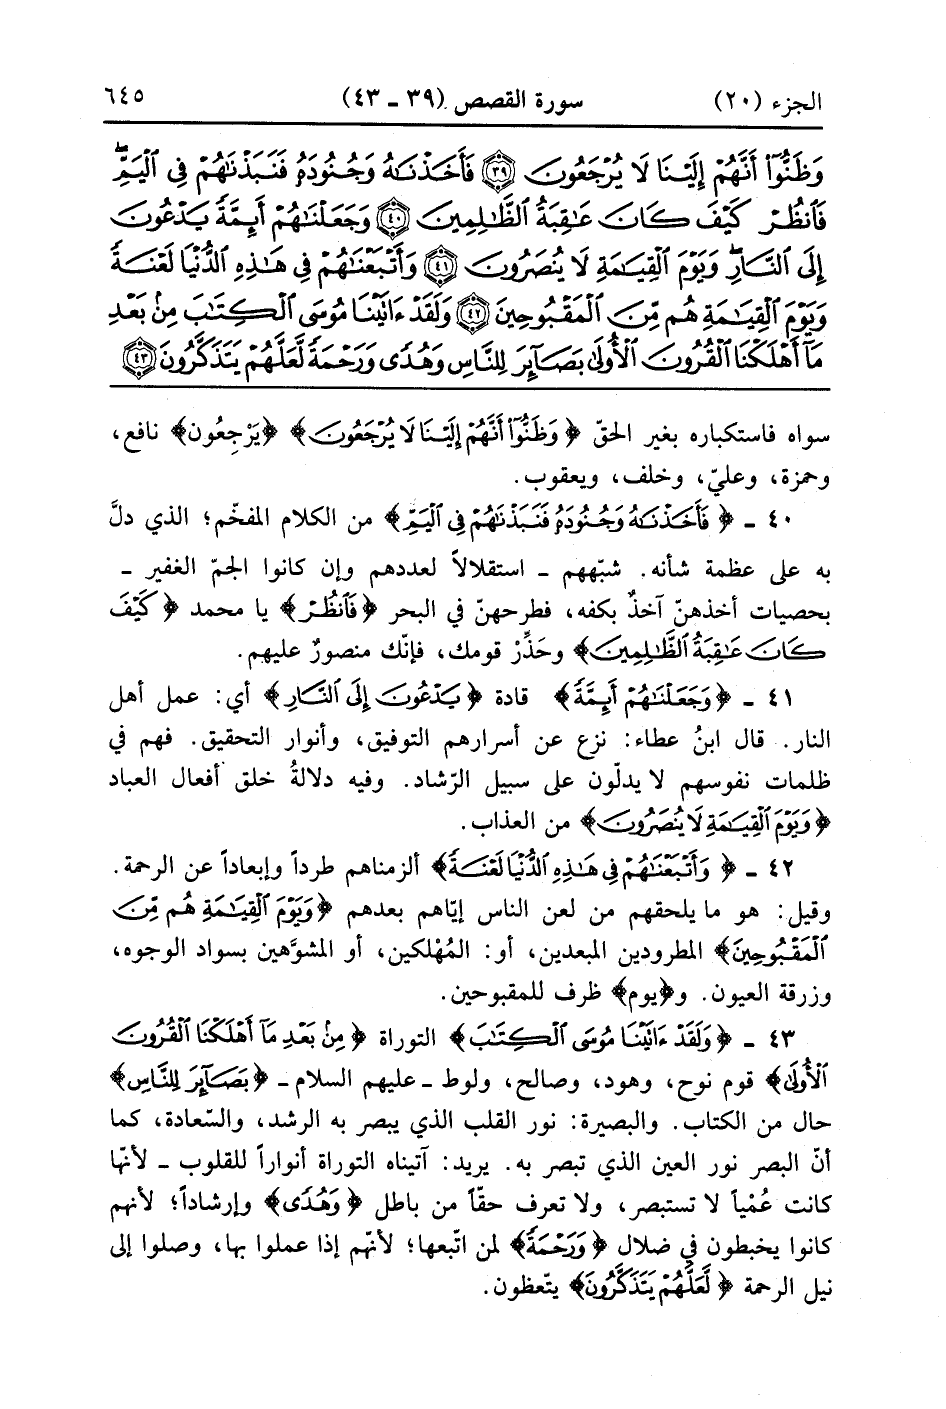 الجزء (٢٠) سورة القصص (٣٩ ـ ٤٣) ٦٤٥
وَظَنُّوٓا۟ أَنَّهُمْ إِلَيْنَا لَا يُرْجَعُونَ ﴿٣٩﴾ فَأَخَذْنَٰهُ وَجُنُودَهُۥ فَنَبَذْنَٰهُمْ فِى ٱلْيَمِّ ۖ
فَٱنظُرْ كَيْفَ كَانَ عَٰقِبَةُ ٱلظَّٰلِمِينَ ﴿٤٠﴾ وَجَعَلْنَٰهُمْ أَئِمَّةً يَدْعُونَ
إِلَى ٱلنَّارِ ۖ وَيَوْمَ ٱلْقِيَٰمَةِ لَا يُنصَرُونَ ﴿٤١﴾ وَأَتْبَعْنَٰهُمْ فِى هَٰذِهِ ٱلدُّنْيَا لَعْنَةً
وَيَوْمَ ٱلْقِيَٰمَةِ هُم مِّنَ ٱلْمَقْبُوحِينَ ﴿٤٢﴾ وَلَقَدْ ءَاتَيْنَا مُوسَى ٱلْكِتَٰبَ مِنۢ بَعْدِ
مَآ أَهْلَكْنَا ٱلْقُرُونَ ٱلْأُولَىٰ بَصَآئِرَ لِلنَّاسِ وَهُدًى وَرَحْمَةً لَّعَلَّهُمْ يَتَذَكَّرُونَ ﴿٤٣﴾
سواه فاستكباره بغير الحقّ ﴿وَظَنُّوٓا۟ أَنَّهُمْ إِلَيْنَا لَا يُرْجَعُونَ﴾ ﴿يَرْجِعُون﴾ نافع،
وحمزة، وعليّ، وخلف، ويعقوب.
٤٠ ـ ﴿فَأَخَذْنَٰهُ وَجُنُودَهُۥ فَنَبَذْنَٰهُمْ فِى ٱلْيَمِّ﴾ من الكلام المفخّم؛ الذي دلَّ
به على عظمة شأنه. شبّههم ـ استقلالاً لعددهم وإن كانوا الجمّ الغفير ـ
بحصيات أخذهنّ آخذٌ بكفه، فطرحهنّ في البحر ﴿فَٱنظُرْ﴾ يا محمد ﴿كَيْفَ
كَانَ عَٰقِبَةُ ٱلظَّٰلِمِينَ﴾ وحَذِّرْ قومك، فإنّك منصورٌ عليهم.
٤١ ـ ﴿وَجَعَلْنَٰهُمْ أَئِمَّةً﴾ قادة ﴿يَدْعُونَ إِلَى ٱلنَّارِ﴾ أي: عمل أهل
النار. قال ابنُ عطاء: نزع عن أسرارهم التوفيق، وأنوار التحقيق. فهم في
ظلمات نفوسهم لا يدلّون على سبيل الرّشاد. وفيه دلالةُ خلق أفعال العباد
﴿وَيَوْمَ ٱلْقِيَٰمَةِ لَا يُنصَرُونَ﴾ من العذاب.
٤٢ ـ ﴿وَأَتْبَعْنَٰهُمْ فِى هَٰذِهِ ٱلدُّنْيَا لَعْنَةً﴾ ألزمناهم طرداً وإبعاداً عن الرحمة.
وقيل: هو ما يلحقهم من لعن الناس إيّاهم بعدهم ﴿وَيَوْمَ ٱلْقِيَٰمَةِ هُم مِّنَ
ٱلْمَقْبُوحِينَ﴾ المطرودين المبعدين، أو: المُهْلكين، أو المشوَّهين بسواد الوجوه،
وزرقة العيون. و﴿يوم﴾ ظرف للمقبوحين.
٤٣ ـ ﴿وَلَقَدْ ءَاتَيْنَا مُوسَى ٱلْكِتَٰبَ﴾ التوراة ﴿مِنۢ بَعْدِ مَآ أَهْلَكْنَا ٱلْقُرُونَ
ٱلْأُولَىٰ﴾ قوم نوح، وهود، وصالح، ولوط ـ عليهم السلام ـ ﴿بَصَآئِرَ لِلنَّاسِ﴾
حال من الكتاب. والبصيرة: نور القلب الذي يبصر به الرشد، والسّعادة، كما
أنّ البصر نور العين الذي تبصر به. يريد: آتيناه التوراة أنواراً للقلوب ـ لأنّها
كانت عُمْياً لا تستبصر، ولا تعرف حقّاً من باطل ﴿وَهُدًى﴾ وإرشاداً؛ لأنهم
كانوا يخبطون في ضلال ﴿وَرَحْمَةً﴾ لمن اتّبعها؛ لأنّهم إذا عملوا بها، وصلوا إلى
نيل الرحمة ﴿لَّعَلَّهُمْ يَتَذَكَّرُونَ﴾ يتّعظون.